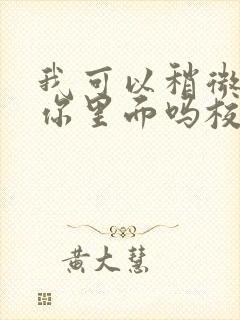 我可以稍微
你里而吗板
黄大慧